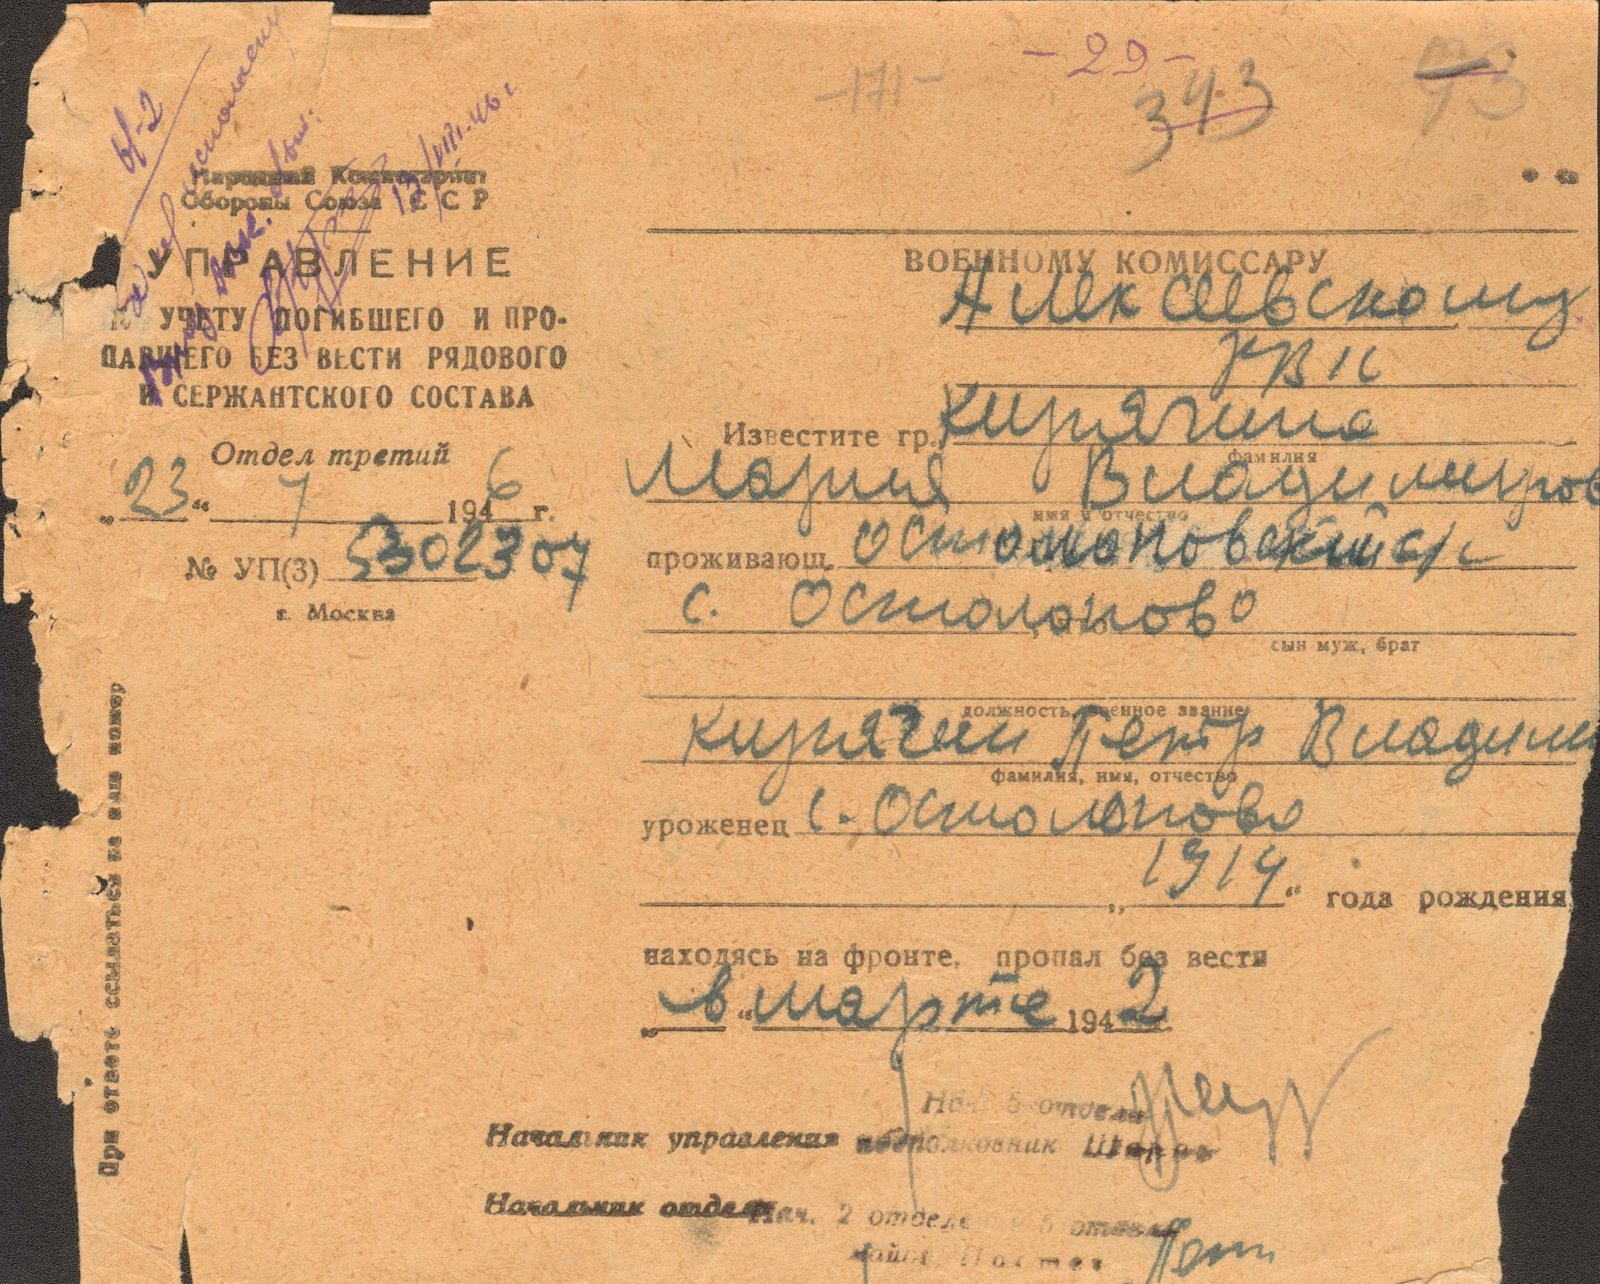 -29-
-171-
343
Народный Комиссариат
Обороны Союза ССР
УПРАВЛЕНИЕ
ПО УЧЕТУ ПОГИБШЕГО И ПРО-
ПАВШЕГО БЕЗ ВЕСТИ РЯДОВОГО
И СЕРЖАНТСКОГО СОСТАВА
Отдел третий
„23“ 7 1946 г.
№ УП(3) 5302307
г. Москва
При ответе ссылаться на наш номер
ВОЕННОМУ КОМИССАРУ
Алексеевскому
РВК
Известите гр. Кирячина
фамилия
Мария Владимиров
имя и отчество
проживающ. Остолоповский с/с
с. Остолопово
сын муж, брат
должность, военное звание
Кирячин Петр Владими
фамилия, имя, отчество
уроженец с. Остолопово
„1914“ года рождения
находясь на фронте, пропал без вести
„в“ марте 1942 г.
Нач. 5 отдела
Начальник управления подполковник
Начальник отдела Нач. 2 отделе 5 отдела